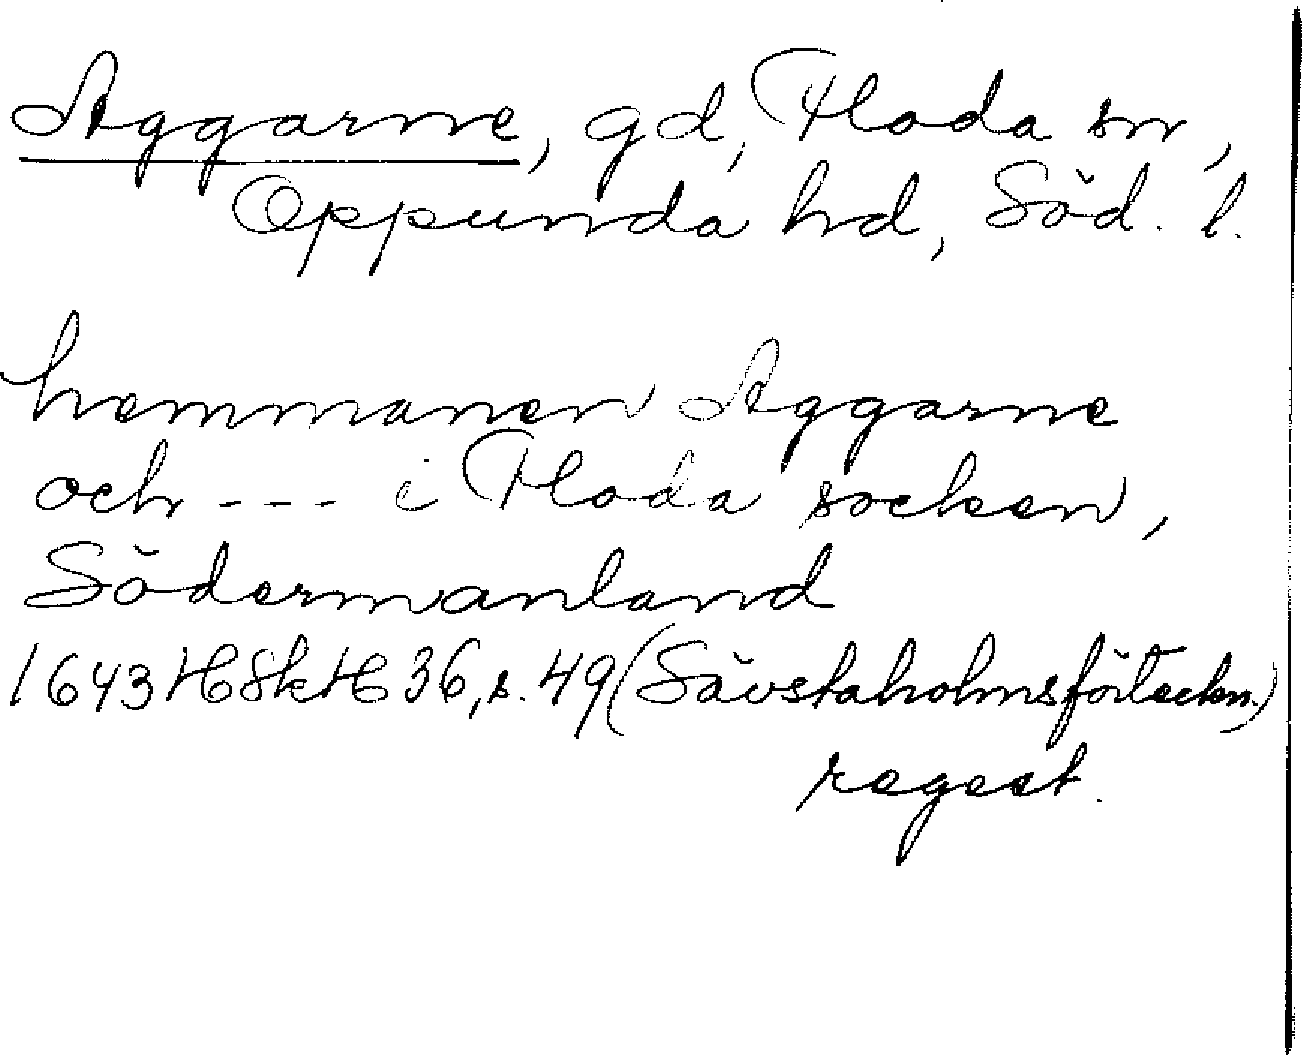 Aggarne, gd, Floda sn,
Oppunda hd, Söd. l.
hemmanen Aggarne
och --- i Floda socken,
Södermanland
1643 HSkH 36, s. 49 (Sävstaholmsförteckn.)
regest.